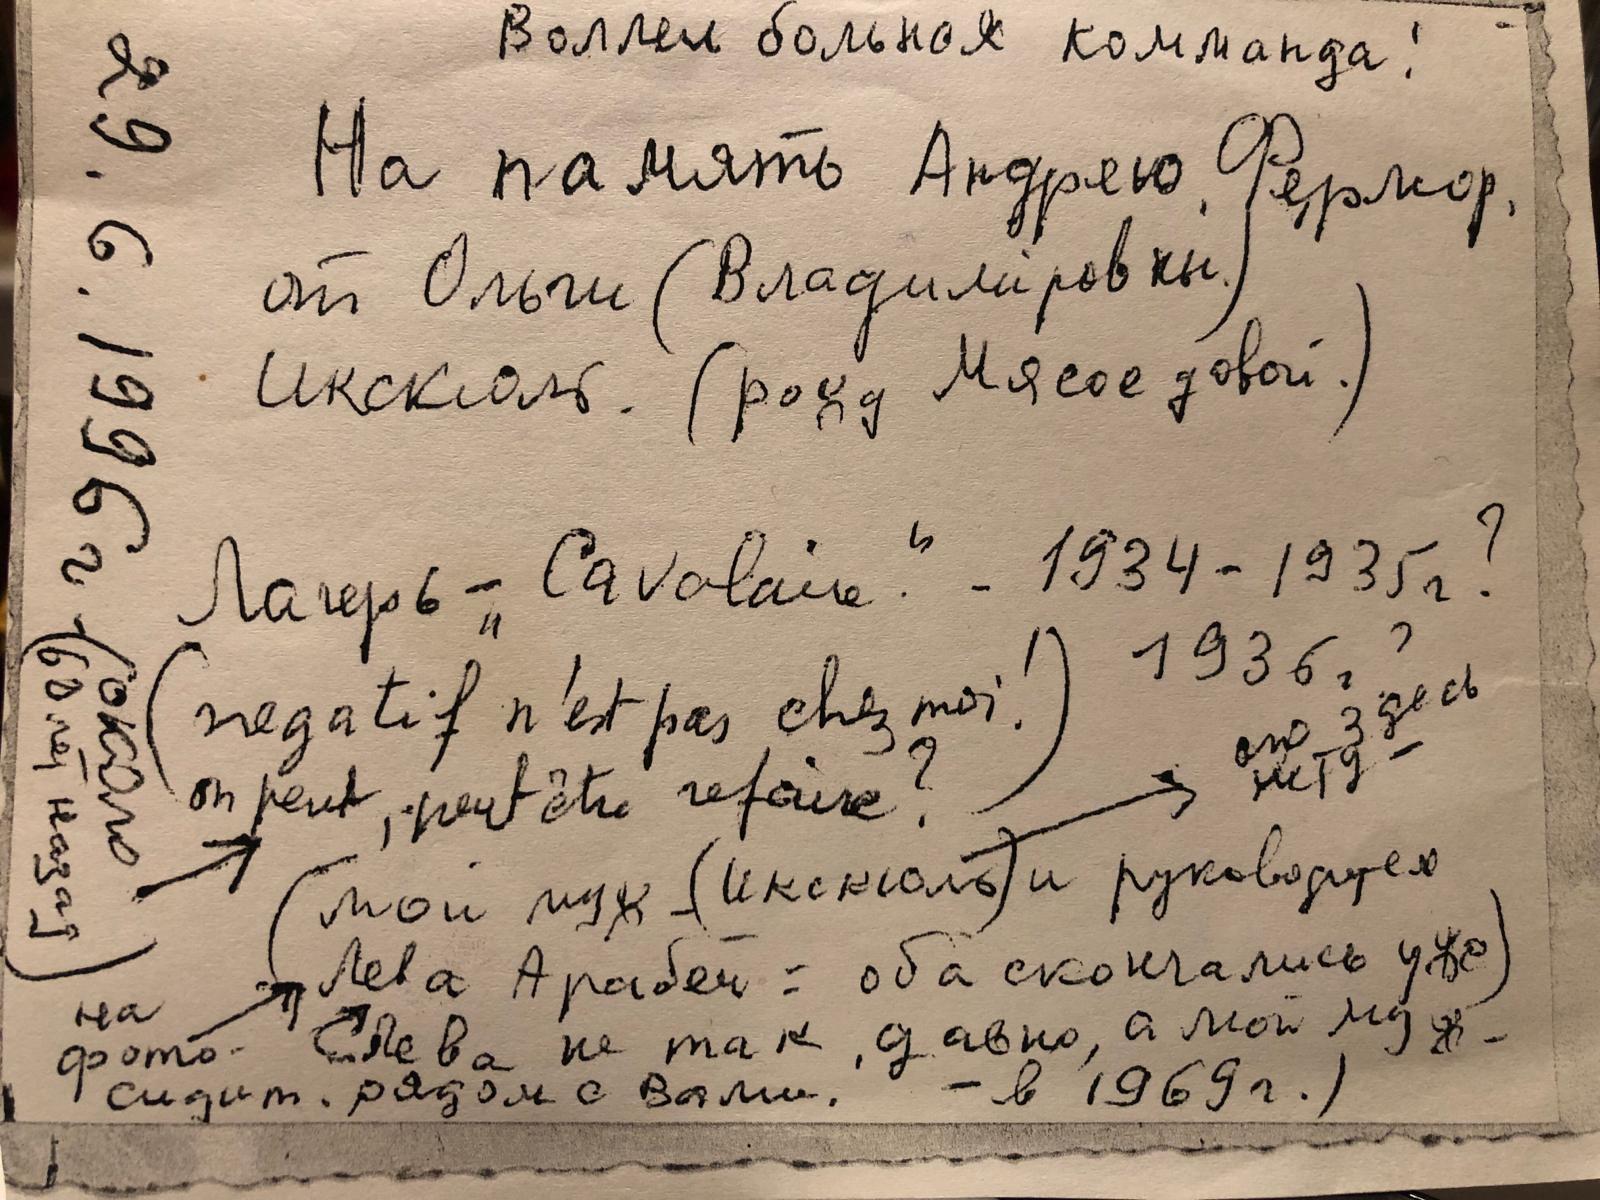 Воллей больная комманда!
На память Андрею Фермор,
от Ольги (Владимiровны)
Икскюль. (рожд Мясоедовой.)
Лагерь - „Cavalaire“ - 1934 - 1935 г?
1936 г?
(negatif n'est pas chez moi!
on peut, peut être refaire?)
его здесь
нету -
(мой муж - (Икскюль) и руководител
Лева Арабей = оба скончались уже)
Лева не так давно, а мой муж -
- в 1969 г.)
на
фото -
сидит. рядом с Вами.
29. 6. 1996 г - (около
60 лет назад)